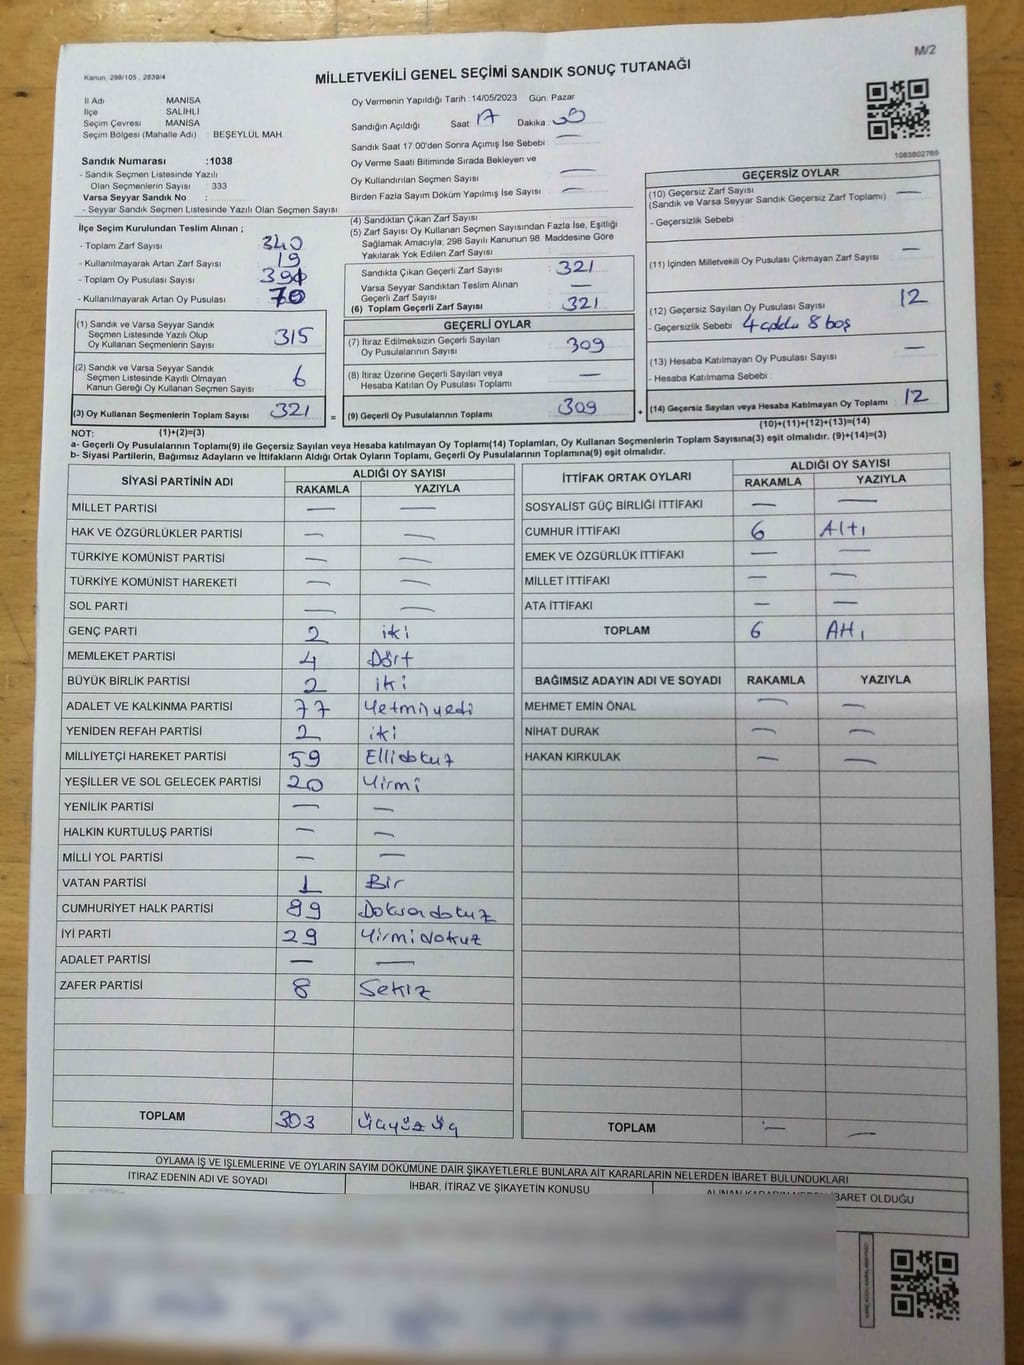 M/2
Kanun, 298/105 , 2839/4
MİLLETVEKİLİ GENEL SEÇİMİ SANDIK SONUÇ TUTANAĞI
İl Adı MANİSA
İlçe SALİHLİ
Seçim Çevresi MANİSA
Seçim Bölgesi (Mahalle Adı) : BEŞEYLÜL MAH.
Sandık Numarası :1038
- Sandık Seçmen Listesinde Yazılı
Olan Seçmenlerin Sayısı : 333
Varsa Seyyar Sandık No :
- Seyyar Sandık Seçmen Listesinde Yazılı Olan Seçmen Sayısı:
Oy Vermenin Yapıldığı Tarih :14/05/2023 Gün: Pazar
Sandığın Açıldığı Saat: 17 Dakika:
Sandık Saat 17.00'den Sonra Açımış İse Sebebi: —
Oy Verme Saati Bitiminde Sırada Bekleyen ve
Oy Kullandırılan Seçmen Sayısı : —
Birden Fazla Sayım Döküm Yapılmış İse Sayısı : —
1083802765
İlçe Seçim Kurulundan Teslim Alınan ;
- Toplam Zarf Sayısı : 340
- Kullanılmayarak Artan Zarf Sayısı : 19
- Toplam Oy Pusulası Sayısı :
- Kullanılmayarak Artan Oy Pusulası : 70
(1) Sandık ve Varsa Seyyar Sandık
Seçmen Listesinde Yazılı Olup
Oy Kullanan Seçmenlerin Sayısı : 315
(2) Sandık ve Varsa Seyyar Sandık
Seçmen Listesinde Kayıtlı Olmayan
Kanun Gereği Oy Kullanan Seçmen Sayısı : 6
(3) Oy Kullanan Seçmenlerin Toplam Sayısı : 321
(1)+(2)=(3)
(4) Sandıktan Çıkan Zarf Sayısı :
(5) Zarf Sayısı Oy Kullanan Seçmen Sayısından Fazla İse, Eşitliği
Sağlamak Amacıyla; 298 Sayılı Kanunun 98. Maddesine Göre
Yakılarak Yok Edilen Zarf Sayısı :
Sandıkta Çıkan Geçerli Zarf Sayısı : 321
Varsa Seyyar Sandıktan Teslim Alınan
Geçerli Zarf Sayısı : —
(6) Toplam Geçerli Zarf Sayısı : 321
GEÇERLİ OYLAR
(7) İtiraz Edilmeksizin Geçerli Sayılan
Oy Pusulalarının Sayısı : 309
(8) İtiraz Üzerine Geçerli Sayılan veya
Hesaba Katılan Oy Pusulası Toplamı : —
= (9) Geçerli Oy Pusulalarının Toplamı : 309 +
GEÇERSİZ OYLAR
(10) Geçersiz Zarf Sayısı : —
(Sandık ve Varsa Seyyar Sandık Geçersiz Zarf Toplamı)
- Geçersizlik Sebebi :
(11) İçinden Milletvekili Oy Pusulası Çıkmayan Zarf Sayısı : —
(12) Geçersiz Sayılan Oy Pusulası Sayısı : 12
- Geçersizlik Sebebi : 8 boş
(13) Hesaba Katılmayan Oy Pusulası Sayısı : —
- Hesaba Katılmama Sebebi :
(14) Geçersiz Sayılan veya Hesaba Katılmayan Oy Toplamı : 12
(10)+(11)+(12)+(13)=(14)
NOT:
a- Geçerli Oy Pusulaların Toplamı(9) ile Geçersiz Sayılan veya Hesaba katılmayan Oy Toplamı(14) Toplamları, Oy Kullanan Seçmenlerin Toplam Sayısına(3) eşit olmalıdır. (9)+(14)=(3)
b- Siyasi Partilerin, Bağımsız Adayların ve İttifakların Aldığı Ortak Oyların Toplamı, Geçerli Oy Pusulalarının Toplamına(9) eşit olmalıdır.
SİYASİ PARTİNİN ADI ALDIĞI OY SAYISI
RAKAMLA YAZIYLA
MİLLET PARTİSİ — —
HAK VE ÖZGÜRLÜKLER PARTİSİ — —
TÜRKİYE KOMÜNİST PARTİSİ — —
TÜRKİYE KOMÜNİST HAREKETİ — —
SOL PARTİ — —
GENÇ PARTİ 2 iki
MEMLEKET PARTİSİ 4 Dört
BÜYÜK BİRLİK PARTİSİ 2 iki
ADALET VE KALKINMA PARTİSİ 77 Yetmiyedi
YENİDEN REFAH PARTİSİ 2 iki
MİLLİYETÇİ HAREKET PARTİSİ 59 Ellidokuz
YEŞİLLER VE SOL GELECEK PARTİSİ 20 Yirmi
YENİLİK PARTİSİ — —
HALKIN KURTULUŞ PARTİSİ — —
MİLLİ YOL PARTİSİ — —
VATAN PARTİSİ 1 Bir
CUMHURİYET HALK PARTİSİ 99 Doksandokuz
İYİ PARTİ 29 Yirmidokuz
ADALET PARTİSİ — —
ZAFER PARTİSİ 8 Sekiz
TOPLAM 303 Üçyüz üç
İTTİFAK ORTAK OYLARI ALDIĞI OY SAYISI
RAKAMLA YAZIYLA
SOSYALİST GÜÇ BİRLİĞİ İTTİFAKI — —
CUMHUR İTTİFAKI 6 Altı
EMEK VE ÖZGÜRLÜK İTTİFAKI — —
MİLLET İTTİFAKI — —
ATA İTTİFAKI — —
TOPLAM 6 Altı
BAĞIMSIZ ADAYIN ADI VE SOYADI RAKAMLA YAZIYLA
MEHMET EMİN ÖNAL — —
NİHAT DURAK — —
HAKAN KIRKULAK — —
TOPLAM — —
OYLAMA İŞ VE İŞLEMLERİNE VE OYLARIN SAYIM DÖKÜMÜNE DAİR ŞİKAYETLERLE BUNLARA AİT KARARLARIN NELERDEN İBARET BULUNDUKLARI
İTİRAZ EDENİN ADI VE SOYADI İHBAR, İTİRAZ VE ŞİKAYETİN KONUSU ALINAN KARARIN NEDEN İBARET OLDUĞU